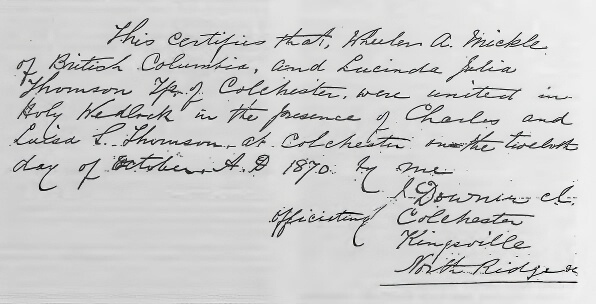 This certifies that, Wheeler A. Mickle
of British Columbia, and Lucinda Julia
Thomson Tp. of Colchester, were united in
Holy Wedlock in the presence of Charles and
Luisa S. Thomson, at Colchester on the twelveth
day of October, A.D 1870. by me
Downer
officiating Colchester
Kingsville
North Ridge